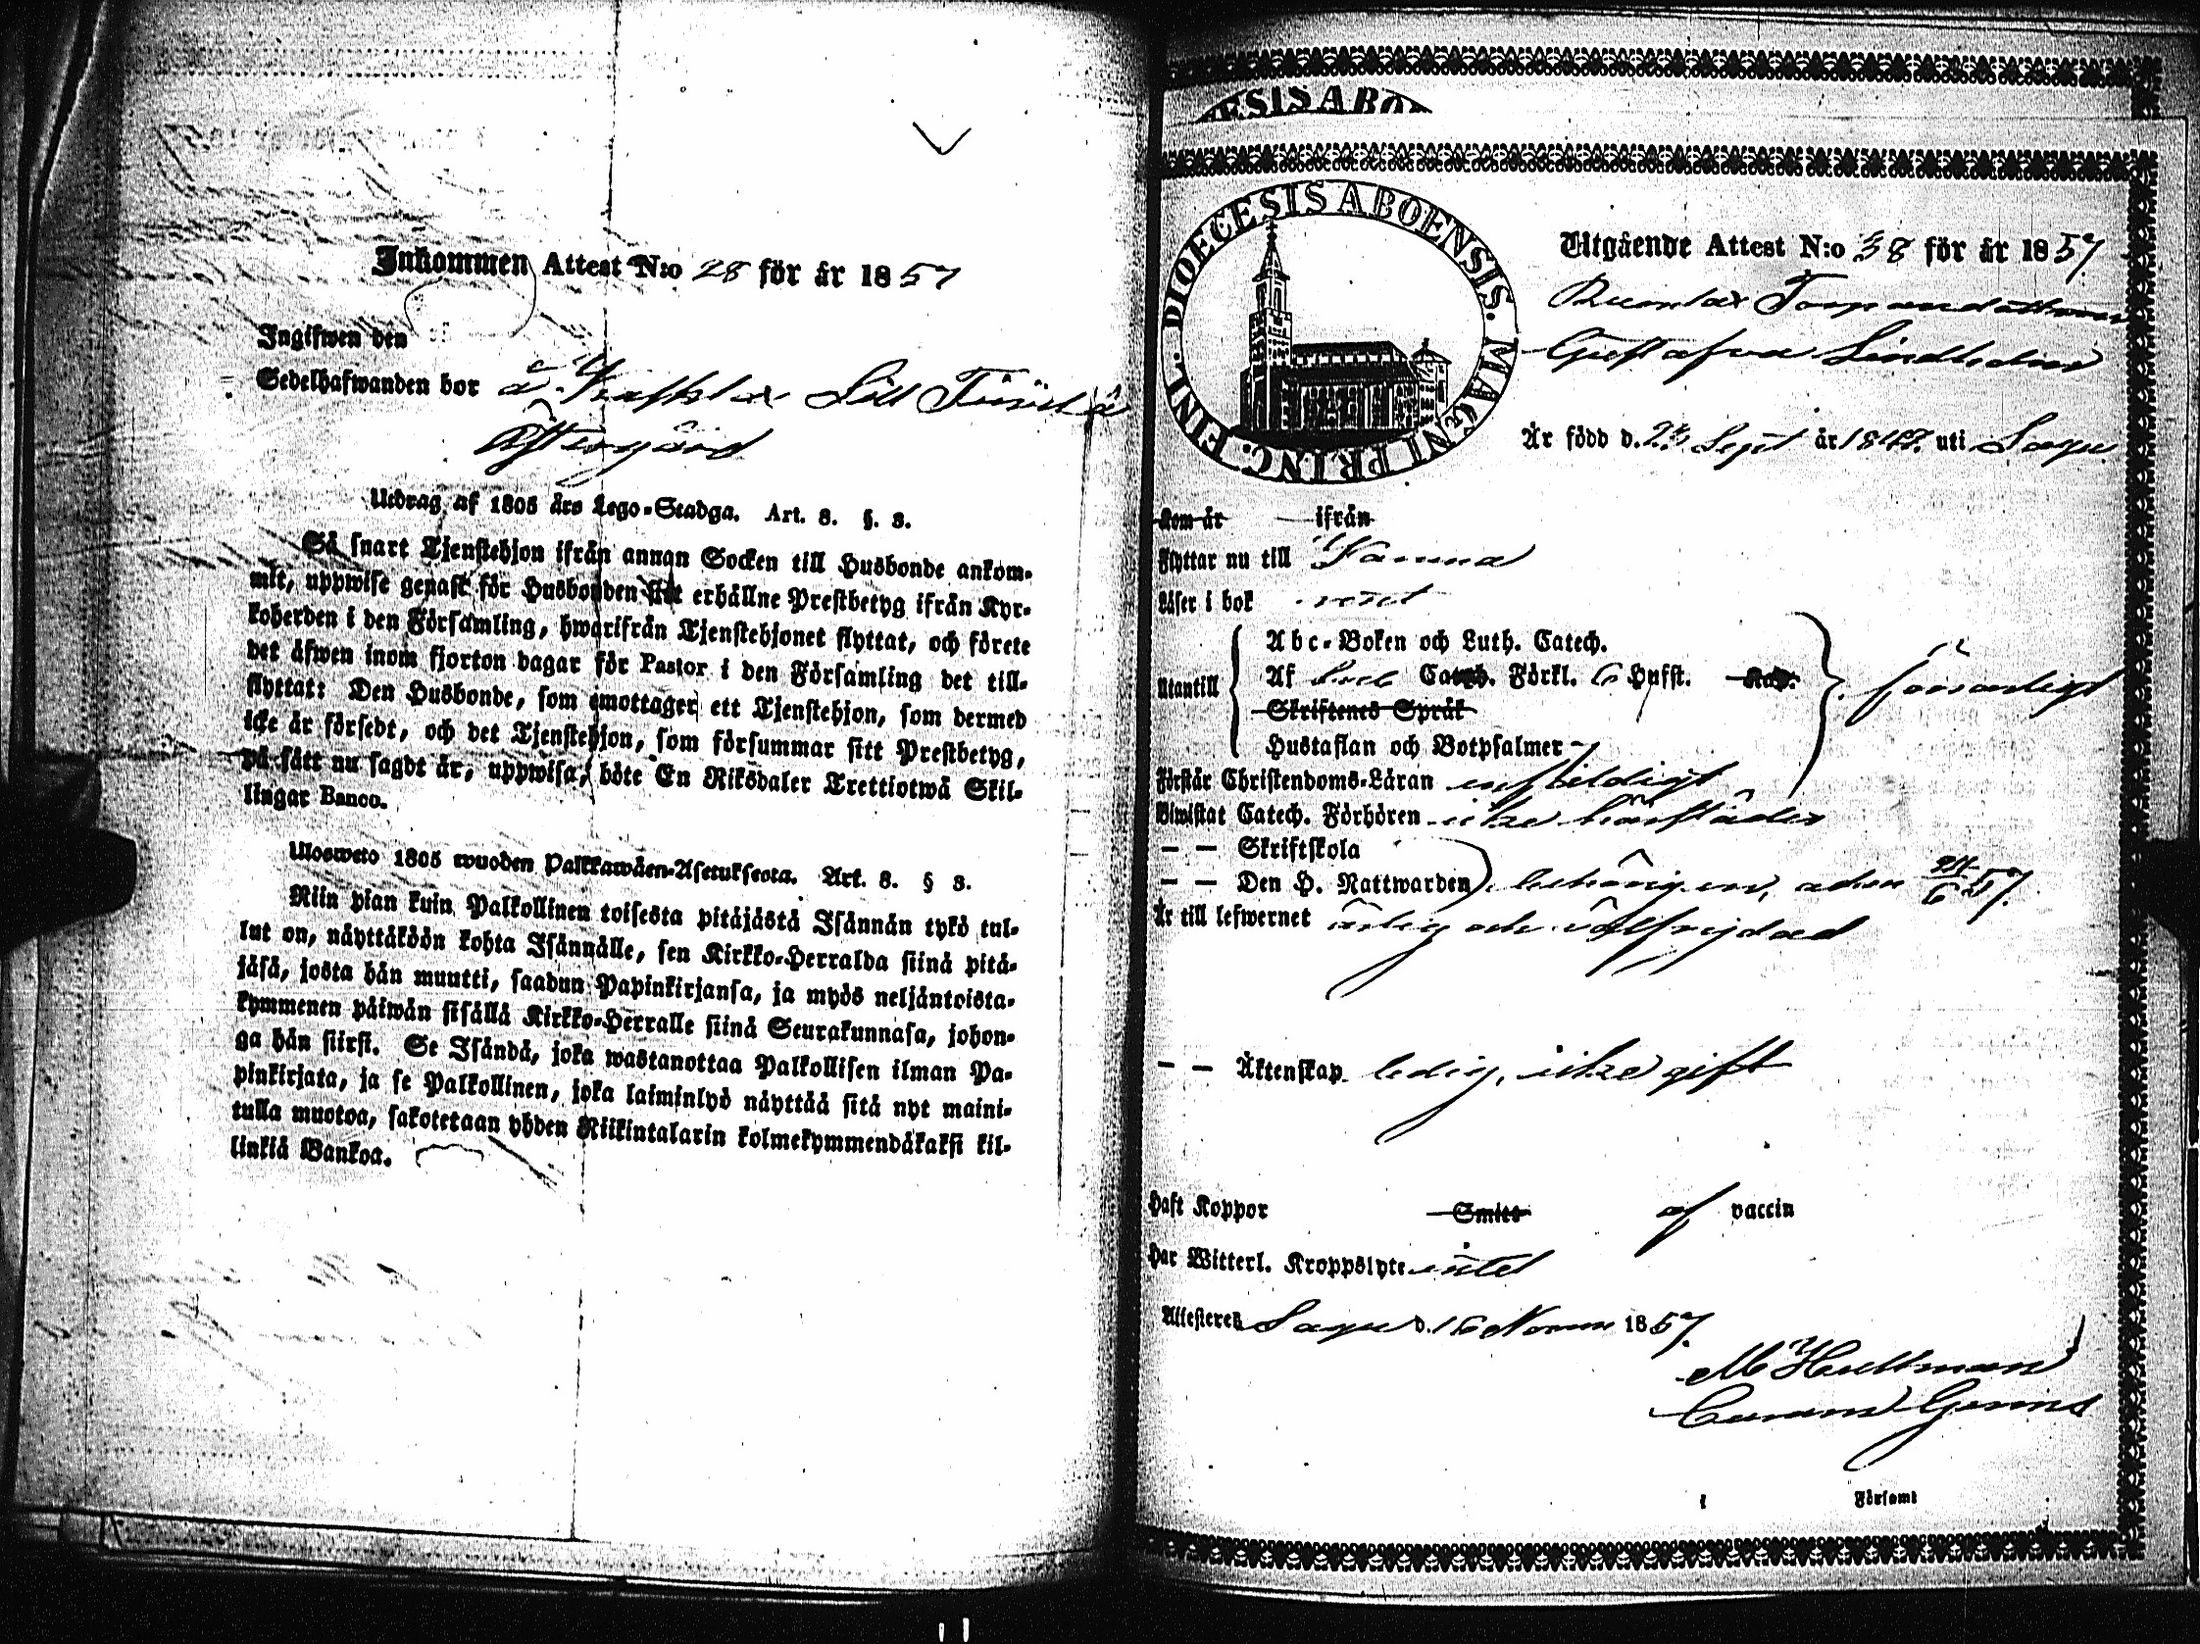 Inkommen Attest N:o 28 för år 1857
Ingifwen den
Sedelhafwanden bor å Lill
Östergård
Utdrag af 1805 års Lego-Stadga. Art. 8. §. 3.
Så snart Tjenstehjon ifrån annan Socken till Husbonde ankom-
mit, uppwise genast för Husbonden sitt erhållne Prestbetyg ifrån Kyr-
koherden i den Församling, hwarifrån Tjenstehjonet flyttat, och förete
det äfwen inom fjorton dagar för Pastor i den Församling det till-
flyttat: Den Husbonde, som emottager ett Tjenstehjon, som dermed
icke är försedt, och det Tjenstehjon, som försummar sitt Prestbetyg,
på sätt nu sagdt är, uppwisa, böte En Riksdaler Trettiotwå Skil-
lingar Banco.
Ulosweto 1805 wuoden Palkkawäen-Asetuksesta. Art. 8. § 3.
Niin pian kuin Palkollinen toisesta pitäjästä Isännän tykö tul-
lut on, näyttäköön kohta Isännälle, sen Kirkko-Herralda siinä pitä-
jäsä, josta hän muutti, saadun Papinkirjansa, ja myös neljäntoista-
kymmenen päiwän sisällä Kirkko-Herralle siinä Seurakunnasa, johon-
ga hän siirsi. Se Isändä, joka wastanottaa Palkollisen ilman Pa-
pinkirjata, ja se Palkollinen, joka laiminlyö näyttää sitä nyt maini-
tulla muotoa, sakotetaan yhden Riikintalarin kolmekymmendäkaksi kil-
linkiä Bankoa.
ESIS ABO
DIOECESIS ABOENSIS. MAGNI PRINC. FINL.
Utgående Attest N:o 38 för år 1857.
Torparedottren
Gustafva Lindholm
Är född d. Sept år 1842. uti Sagu
Kom år ifrån
Flyttar nu till
Läser i bok rent
Utantill
Abc-Boken och Luth. Catech.
Af Catech. Förkl. 6 Hufst. Kap.
Skriftenes Språk
Hustaflan och Botpsalmer
försvarligt
Förstår Christendoms-Läran enfaldigt
Biwistat Catech. Förhören icke härstädes
— — Skriftskola
— — Den H. Nattwarden behörigen, 57.
Är till lefwernet ärlig och välfrejdad
— — Äktenskap ledig, icke gift
Haft Koppor Smitt af vaccin
Har Witterl. Kroppslyte intet
Attesteres Sagu d. 16 Novem 1857.
M Hultman
Förfamt